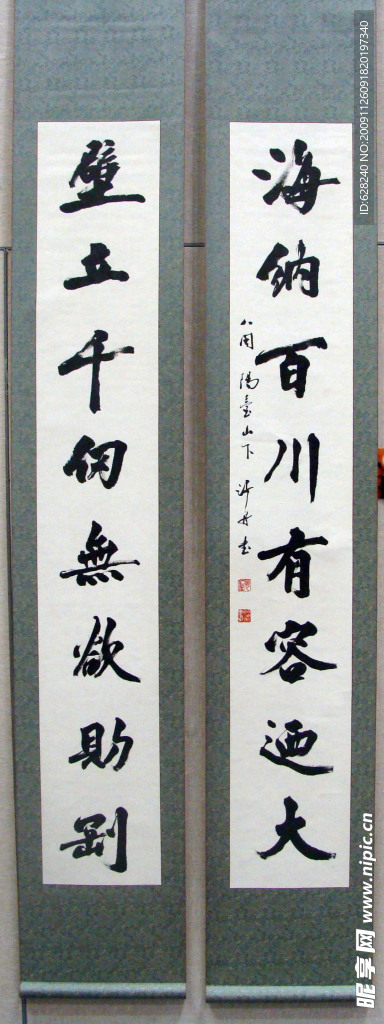 海納百川有容迺大
壁立千仞無欲則剛
陽臺山下
ID:628240 NO:20091126091820197340
昵享网 www.nipic.cn